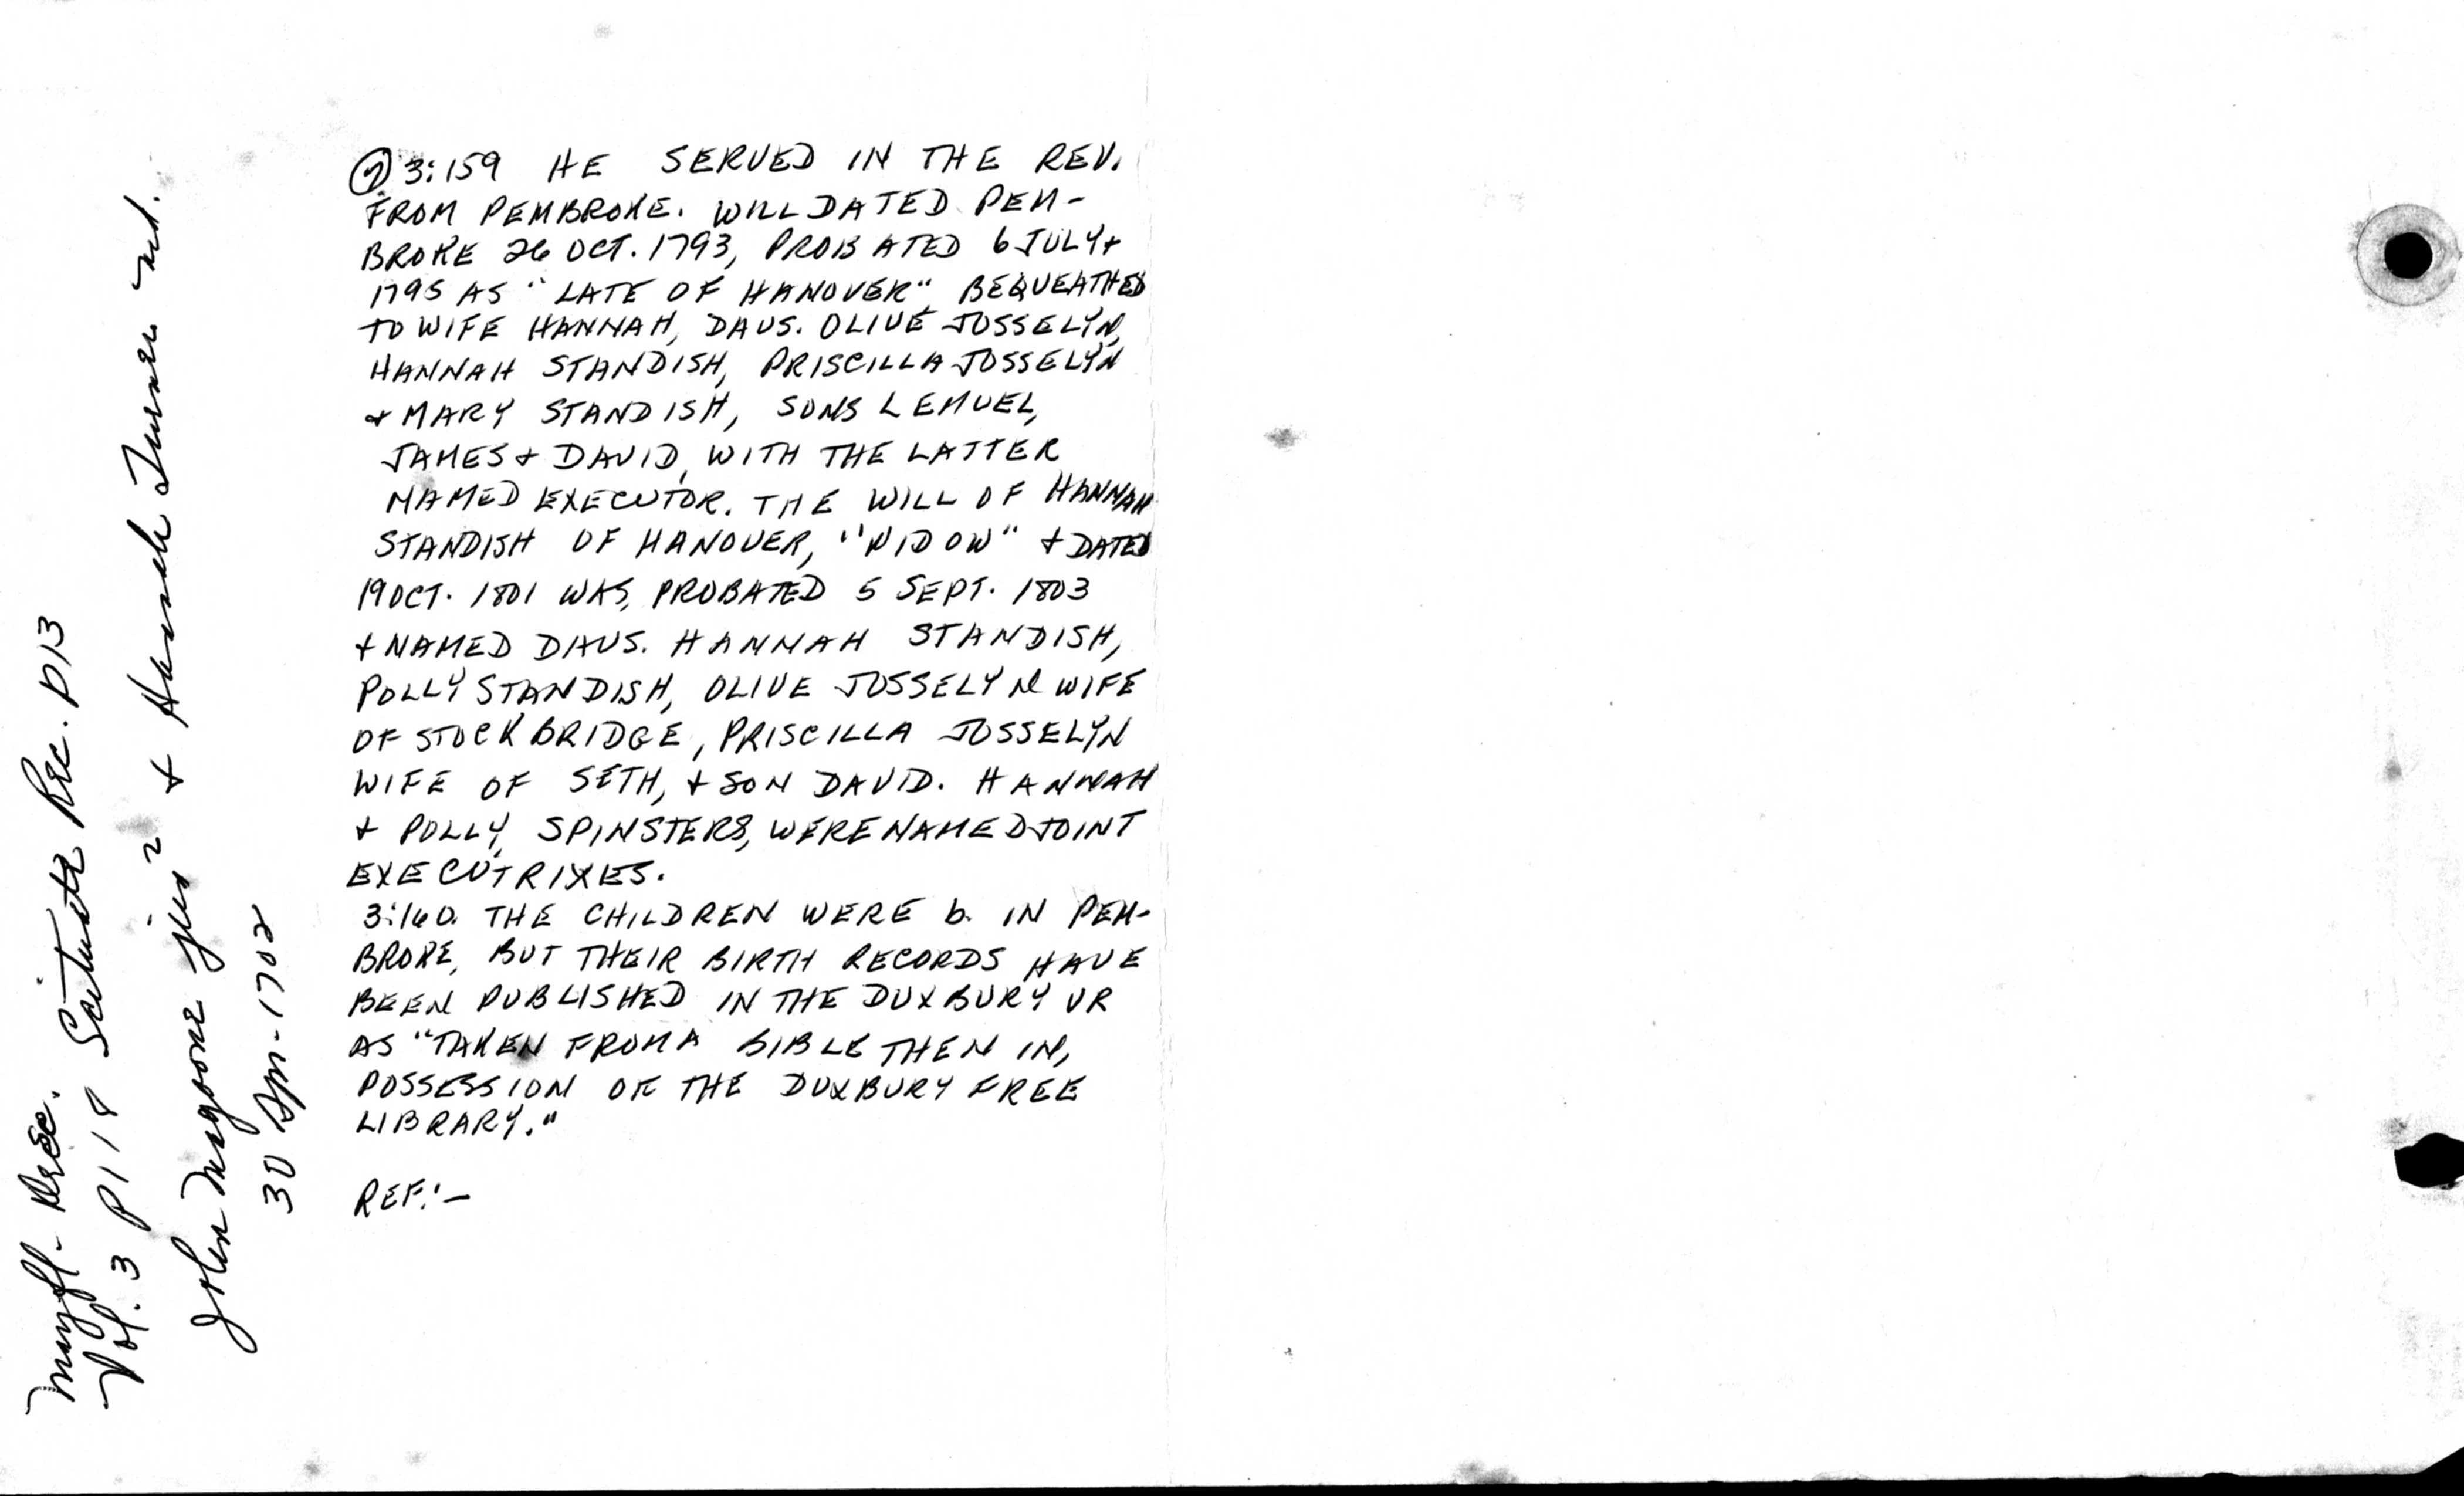 Mayfl- Desc.
Vol. 3 P118 Scituate Rec. P13
John Magoone jun² + Hannah Turner md.
30 Apr-1702
② 3:159 HE SERVED IN THE REV.
FROM PEMBROKE. WILL DATED PEM-
BROKE 26 OCT. 1793, PROBATED 6 JULY +
1795 AS "LATE OF HANOVER" BEQUEATHED
TO WIFE HANNAH, DAUS. OLIVE JOSSELYN,
HANNAH STANDISH, PRISCILLA JOSSELYN
+ MARY STANDISH, SONS LEMUEL,
JAMES + DAVID, WITH THE LATTER
NAMED EXECUTOR. THE WILL OF HANNAH
STANDISH OF HANOVER, "WIDOW" + DATED
19 OCT. 1801 WAS PROBATED 5 SEPT. 1803
+ NAMED DAUS. HANNAH STANDISH,
POLLY STANDISH, OLIVE JOSSELYN WIFE
OF STOCKBRIDGE, PRISCILLA JOSSELYN
WIFE OF SETH, + SON DAVID. HANNAH
+ POLLY, SPINSTERS, WERE NAMED JOINT
EXECUTRIXES.
3:160. THE CHILDREN WERE b. IN PEM-
BROKE, BUT THEIR BIRTH RECORDS HAVE
BEEN PUBLISHED IN THE DUXBURY VR
AS "TAKEN FROM A BIBLE THEN IN,
POSSESSION OF THE DUXBURY FREE
LIBRARY."
REF:-